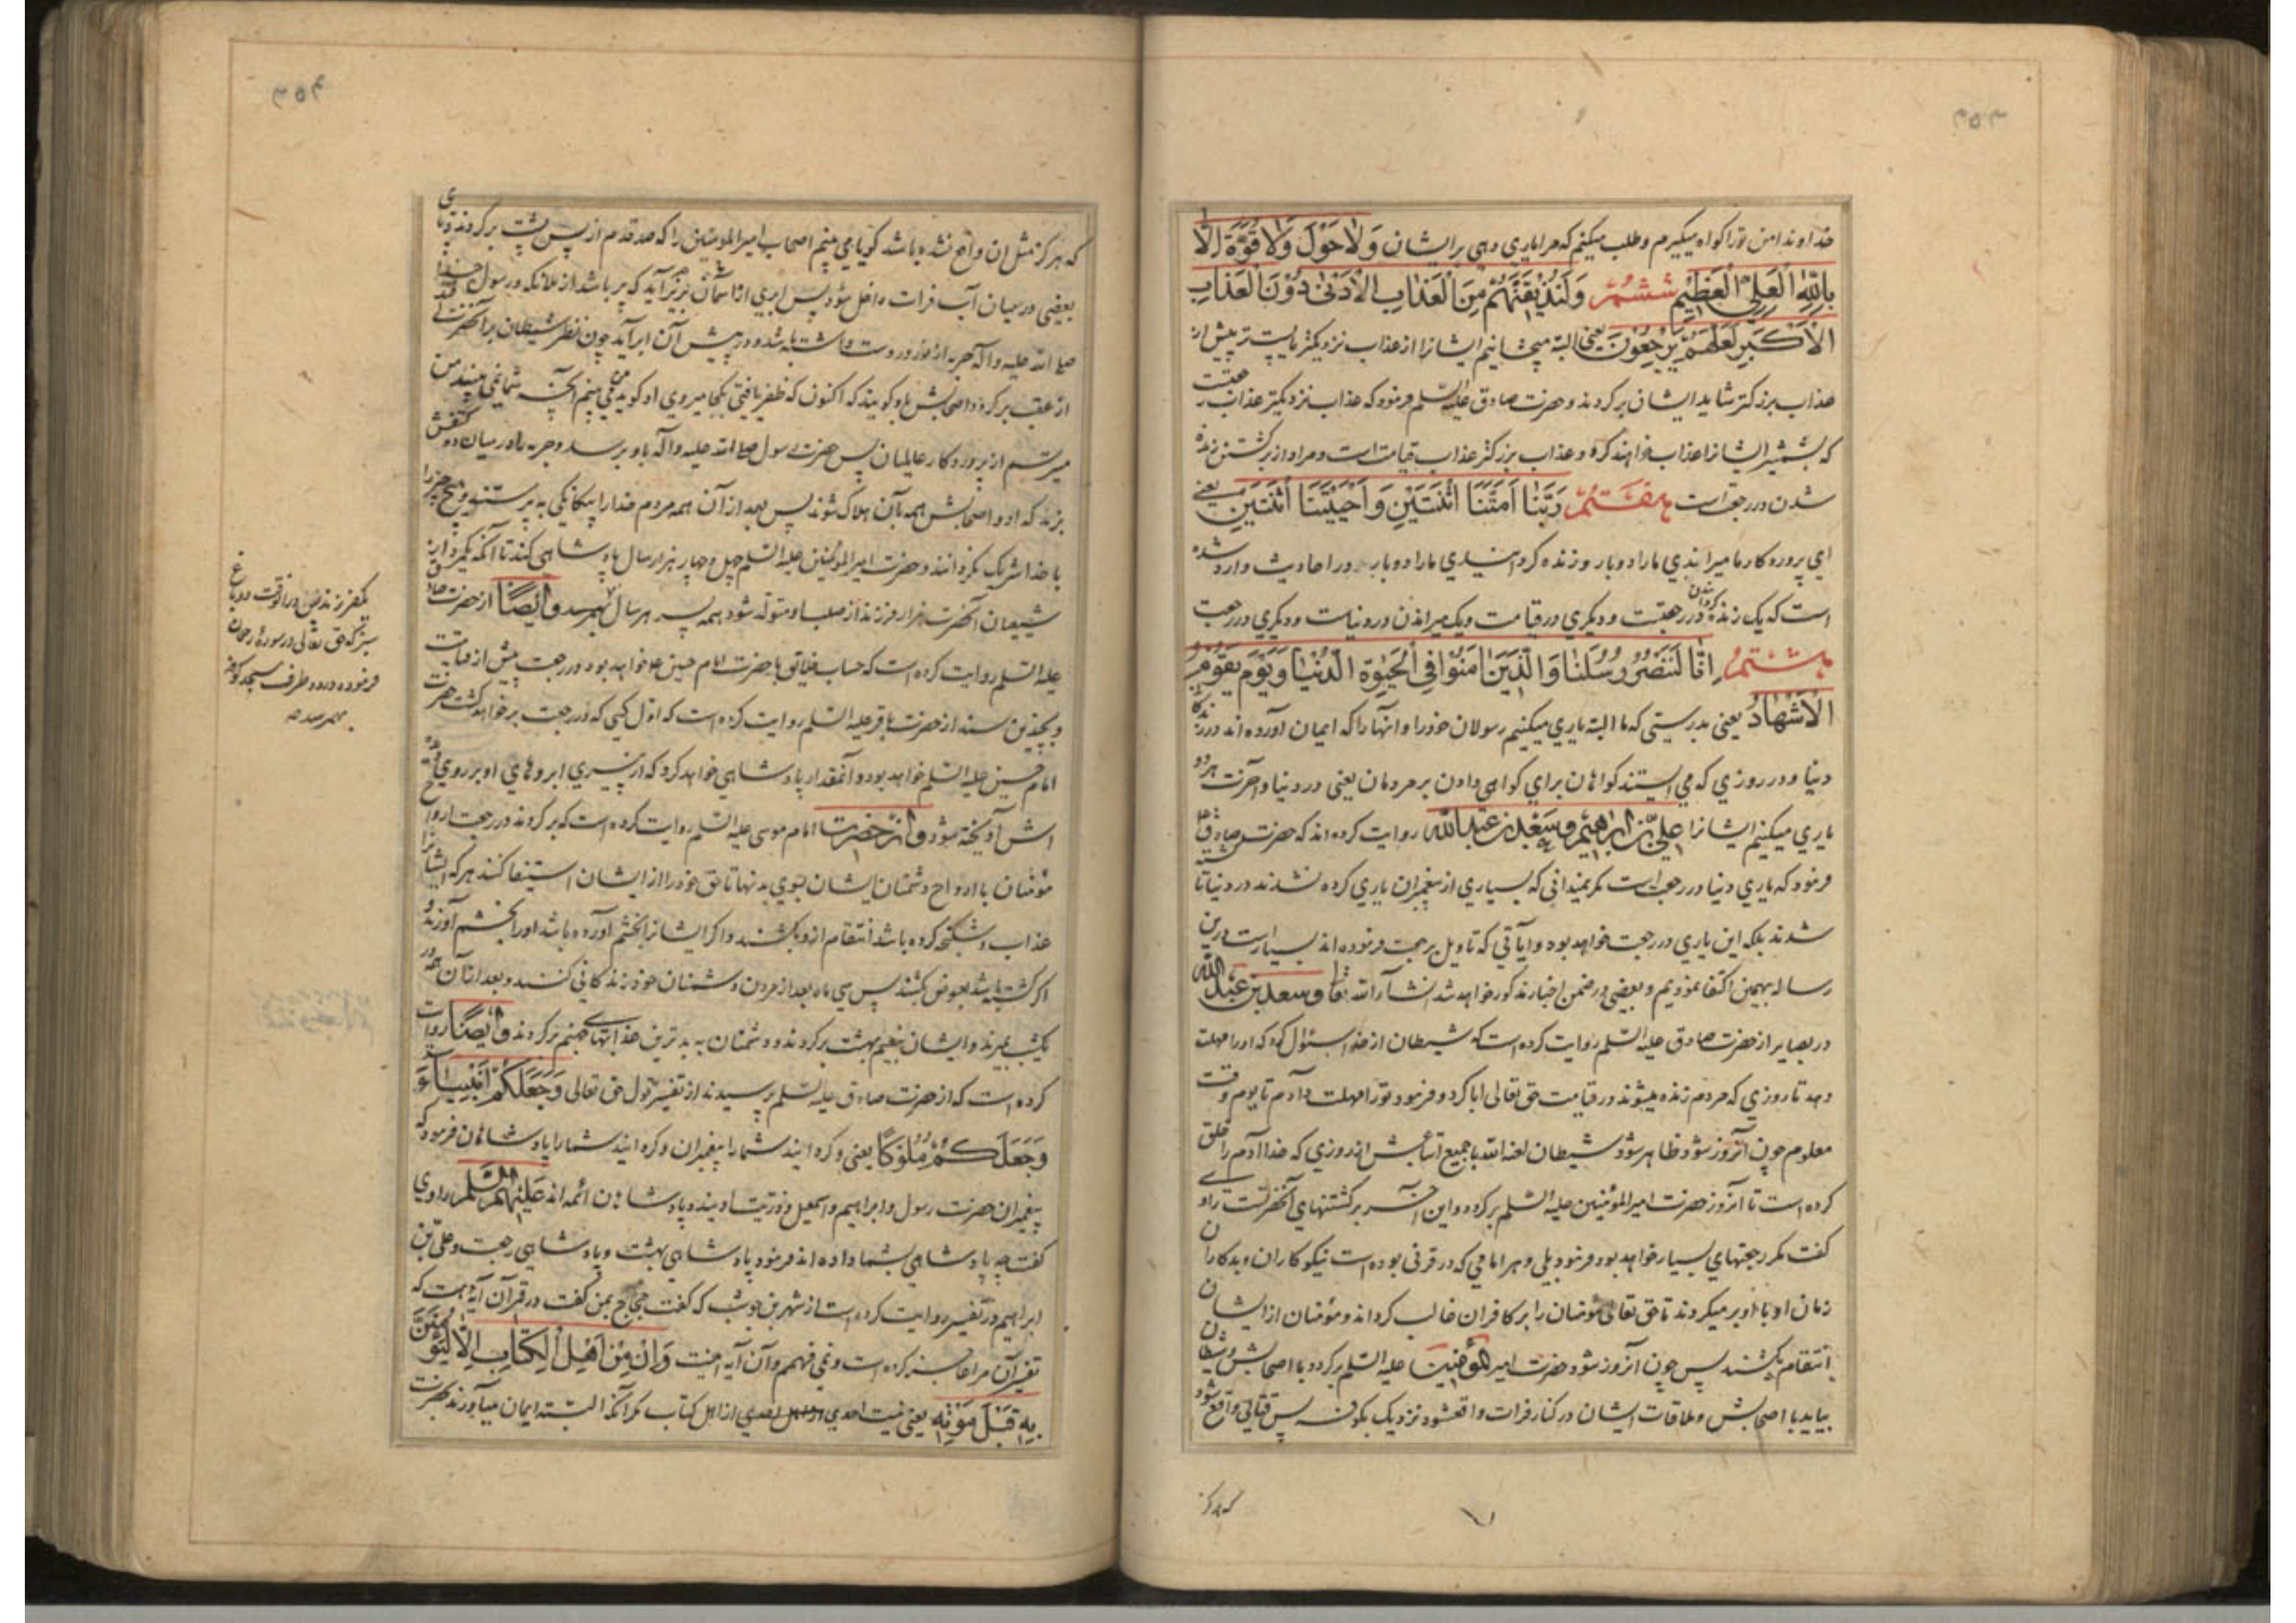 خداوندا من ترا کواه میگیرم و طلب میکنم که مرا یاری دهی بر ایشان وَلَا حَوْلَ وَلَا قُوَّةَ اِلَّا
بِاللّٰهِ الْعَلِيِّ الْعَظِيْمِ ششم وَلَنُذِيْقَنَّهُمْ مِنَ الْعَذَابِ الْاَدْنٰى دُوْنَ الْعَذَابِ
الْاَكْبَرِ لَعَلَّهُمْ يَرْجِعُوْنَ یعنی البته میچشانیم ایشانرا از عذاب نزدیکتر یا پست تر پیش از
عذاب بزرکتر شاید ایشان برکردند و حضرت صادق علیه السلم فرمود که عذاب نزدیکتر عذاب رجعتست
که بشمشیر ایشانرا عذاب خواهند کرد و عذاب بزرکتر عذاب قیامت است و مراد از برکشتن زنده
شدن در رجعتست هفتم رَبَّنَا اَمَتَّنَا اثْنَتَيْنِ وَاَحْيَيْتَنَا اثْنَتَيْنِ یعنی
ای پروردکار ما میرانیدی ما را دوبار و زنده کردانیدی ما را دوبار در احادیث وارد شده
است که یک زنده کردانیدن در رجعتست و دیکری در قیامت و یک میراندن در دنیاست و دیکری در رجعت
هشتم اِنَّا لَنَنْصُرُ رُسُلَنَا وَالَّذِيْنَ اٰمَنُوْا فِى الْحَيٰوةِ الدُّنْيَا وَيَوْمَ يَقُوْمُ
الْاَشْهَادُ یعنی بدرستی که ما البته یاری میکنیم رسولان خود را و آنها را که ایمان آورده اند در زندکانی
دنیا و در روزی که می ایستند کواهان برای کواهی دادن بر مردمان یعنی در دنیا و آخرت هر دو
یاری میکنیم ایشانرا علی بن ابراهیم و سعد بن عبد الله روایت کرده اند که حضرت صادق
فرمود که یاری دنیا در رجعت است مکر نمیدانی که بسیاری از پیغمبران یاری کرده نشدند در دنیا تا کشته
شدند بلکه این یاری در رجعت خواهد بود و آیاتی که تاویل برجعت فرموده اند بسیار است درین
رساله بهمین اکتفا نمودیم و بعضی در ضمن اخبار مذکور خواهد شد انشاء الله تعا و سعد بن عبد الله
در بصایر از حضرت صادق علیه السلم روایت کرده است که شیطان از خدا سئوال کرد که او را مهلت
دهد تا روزی که مردم زنده میشوند در قیامت حق تعالی ابا کرد و فرمود ترا مهلت دادم تا یوم وقت
معلوم چون آنروز شود ظاهر شود شیطان لعنه الله با جمیع اتباعش از روزی که خدا آدم را خلق
کرده است تا آنروز حضرت امیر المؤمنین علیه السلم برکردد و این آخر برکشتنهای آنحضرتست راوی
کفت مکر رجعتهای بسیار خواهد بود فرمود بلی و هر امامی که در قرنی بوده است نیکوکاران و بدکاران
زمان او با او بر میکردند تا حق تعالی مؤمنان را بر کافران غالب کرداند و مؤمنان از ایشان
انتقام بکشند پس چون آنروز شود حضرت امیر المؤمنین علیه السلم برکردد با اصحابش و شیطان
بیاید با اصحابش و ملاقات ایشان در کنار فرات واقعشود نزدیک بکوفه پس قتالی واقع شود
که هرکز
که هرکز مثل ان واقع نشده باشد کویا می بینم اصحاب امیر المومنین را که صد قدم از پس پشت برکردند و پای
بعضی در میان آب فرات داخل شود پس ابری از آسمان بزیر آید که پر باشد از ملائکه و رسول خدا
صلی الله علیه و آله حربه از نور در دست داشته باشد و در پیش آن ابر آید چون نظر شیطان بر آنحضرت افتد
از عقب برکردد و اصحابش باو کویند که اکنون که ظفر یافتی بکجا میروی او کوید من می بینم آنچه شما نمی بینید من
میترسم از پروردکار عالمیان پس حضرت رسول صلی الله علیه و آله باو برسد و حربه را در میان دو کتفش
بزند که او و اصحابش همه بآن هلاک شوند پس بعد از آن همه مردم خدا را بیکانکی به پرستند و هیچ چیز را
با خدا شریک نکردانند و حضرت امیر المؤمنین علیه السلم چهل و چهار هزار سال پادشاهی کند تا آنکه یکمرد از
شیعیان آنحضرت هزار فرزند از صلب او متولد شود همه پسر هر سال یکپسر و ایضاً از حضرت صادق
علیه السلم روایت کرده است که حساب خلایق با حضرت امام حسین عا خواهد بود در رجعت پیش از قیامت
و بچندین سند از حضرت باقر علیه السلم روایت کرده است که اول کسی که در رجعت برخواهد کشت حضرت
امام حسین علیه السلم خواهد بود و آنمقدار پادشاهی خواهد کرد که از پیری ابروهای او بر روی دیده
اش آویخته شود و از حضرت امام موسی علیه السلم روایت کرده است که برکردند در رجعت ارواح
مؤمنان با ارواح دشمنان ایشان بسوی بدنها تا حق خود را از ایشان استیفا کنند هر که ایشانرا
عذاب و شکنجه کرده باشد انتقام ازو بکشند و اکر ایشانرا بخشم آورده باشد او را بخشم آورند و
اکر کشته باشد بعوض بکشند پس سی ماه بعد از مردن دشمنان خود زندکانی کنند و بعد از آن همه در
یکشب بمیرند و ایشان بنعیم بهشت برکردند و دشمنان به بدترین عذابهای جهنم برکردند و ایضاً روایت
کرده است که از حضرت صادق علیه السلم پرسیدند از تفسیر قول حق تعالی وَجَعَلَكُمْ اَنْبِيَاءَ
وَجَعَلَكُمْ مُلُوْكًا یعنی و کردانید شما را پیغمبران و کردانید شما را پادشاهان فرمود که
پیغمبران حضرت رسول و ابراهیم و اسمعیل و ذریت اویند و پادشاهان ائمه اند علیهم السلم راوی
کفت چه پادشاهی بشما داده اند فرمود پادشاهی بهشت و پادشاهی رجعت و علی بن
ابراهیم در تفسیر روایت کرده است از شهر بن حوشب که کفت حجاج بمن کفت در قرآن آیه هست که
تفسیر آن مرا عاجز کرده است و نمی فهمم و آن آیه اینست وَاِنْ مِنْ اَهْلِ الْكِتَابِ اِلَّا لَيُؤْمِنَنَّ
بِهِ قَبْلَ مَوْتِهِ یعنی نیست احدی از اهل کتاب مکر آنکه البته ایمان میآورند بحضرت
سبز که حق تعالی در سورهٔ رحمن
فرموده در دو طرف مسجد کوفه